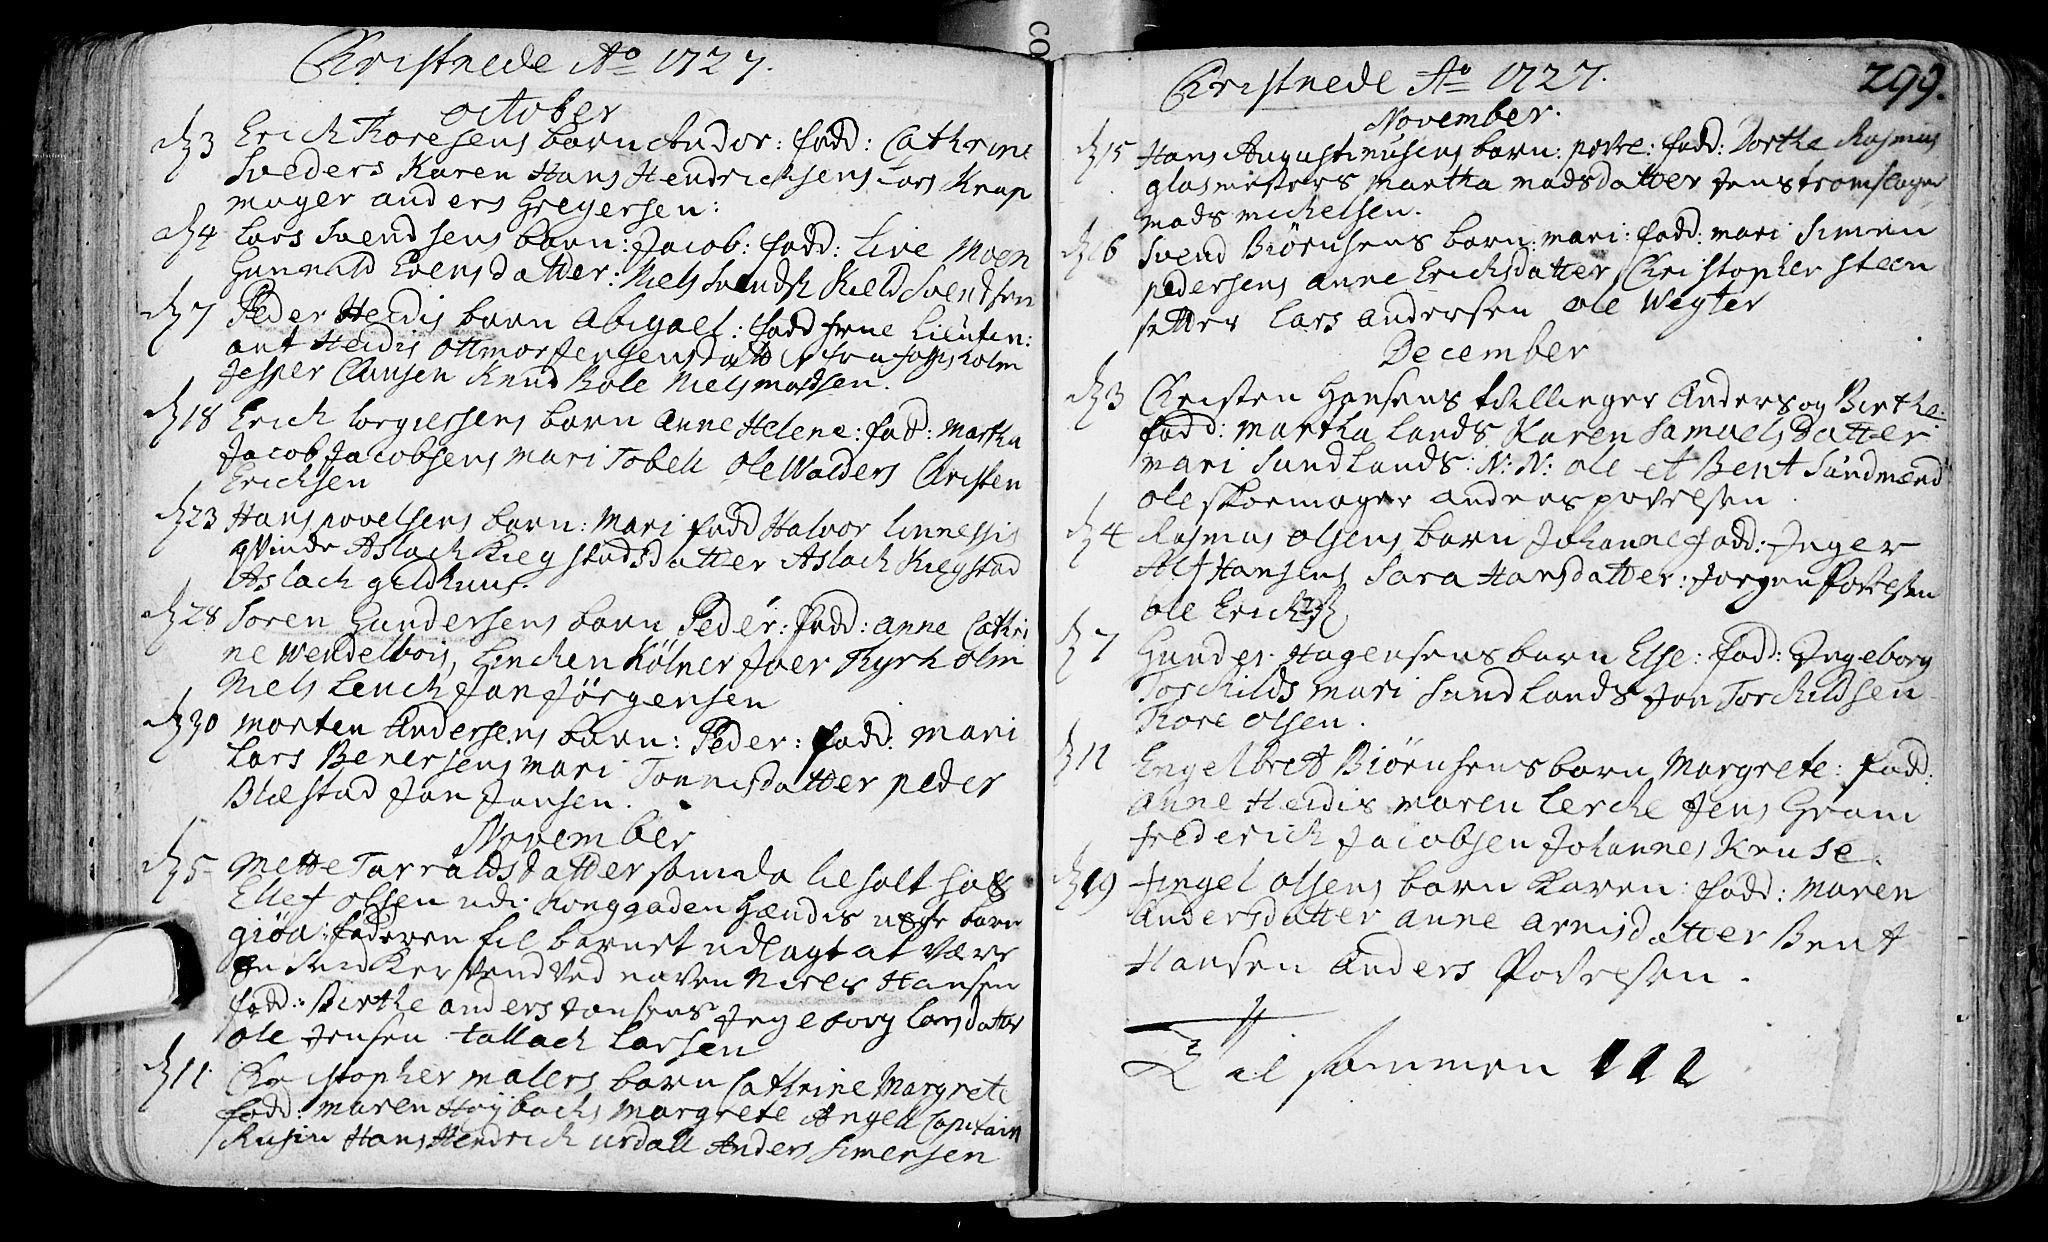 Christnede Ao 1727.
October
d 3 Erich Thoresens barn Andor: fadd: Cathrine
Sveders Karen Hans Hendrichsens Lars Knap
mager anders Gregersen:
d 4 Lars Svendsens barn: Jacob: fadd: Live Moen
Gunnild Evensdatter: Niels Svends: Kield Svendsen
d 7 Peder Heidis barn Abigael: fadd Lieutin:
ant Heidis Jensdatter fra holm
Jesper Clausen Knud Bole Niels madsen.
d 18 Erich Torgiersens barn Anne Helene: fad: Martha
Jacob Jacobsens mari Tobell Ole Walders Christen
Ericksen
d 23 Hans povelsens barn: Mari fadd Halvor Linnessis
qvinde Aslach Kiegstadsdatter Aslach Kiegstad
Aslach gildhuus.
d 28 Soren Gundersens barn Peder: fadd: anne Cathri
ne Wendelbois, Hinchen Kölner Iver Thyrholm
Niels Lench Jan Jörgensen
d 30 Morten Andersens barn: Peder: fadd: Mari
Lars Berersens mari Tonnisdatter peder
Blæstad Jan Jansen.
November
d 5 Mette Tarraldsdatter som da
Ellef olsen udi Konggaden Hændis uægte barn
giöa: faderen til barnet udlagt at være
en Snidker Svend ved naven Niels Hansen
fadd: Birthe anders Jansens Jngeborg Larsdatter
ole Jensen tallach Larsen
d 11 Christopher malers barn Cathrine Margrete
fadd: maren Høybachs Margrete Angell Capitain
Hans Hendrich Urdall Anders Simersen
Christnede Ao 1727. 299.
November.
d 15 Hans Augustinusens barn: povre: fadd: Dorthe Rasmus
glasmesters Martha madsdatter Jens tromslager
mads michelsen.
d 16 Svend Biörnsens barn: mari: fadd: mari Simen
pedersens anne Erichsdatter Christopher steen
setter Lars andersen ole Wegter
December
d 3 Christen Hansens tvillinger Anders og Birthe.
fadd: martha Lands Karen Samuelsdatter
mari Sundlands: N: N: ole et Bent Sundmænd
ole skoemager anders povelsen.
d 4 Rasmus olsens barn Johanne fadd: Inger
Alf Hansens Sara Hansdatter: Jorgen Povelsen
ole Erichs:
d 7 Gunder Hagensens barn Else: fad: Ingeborg
Torchilds mari Sundlands Jon Torchildsen
Thore olsen.
d 11 Engelbret Biörnsens barn Margrete: fadd:
anne Heidis maren Lerche Jens Gram
frederich Jacobsen Johannes Kruse.
d 19 fingel olsens barn Karen: fadd: Maren
Andersdatter anne arnisdatter Bent
Hansen Anders Povelsen.
Til sammen 111